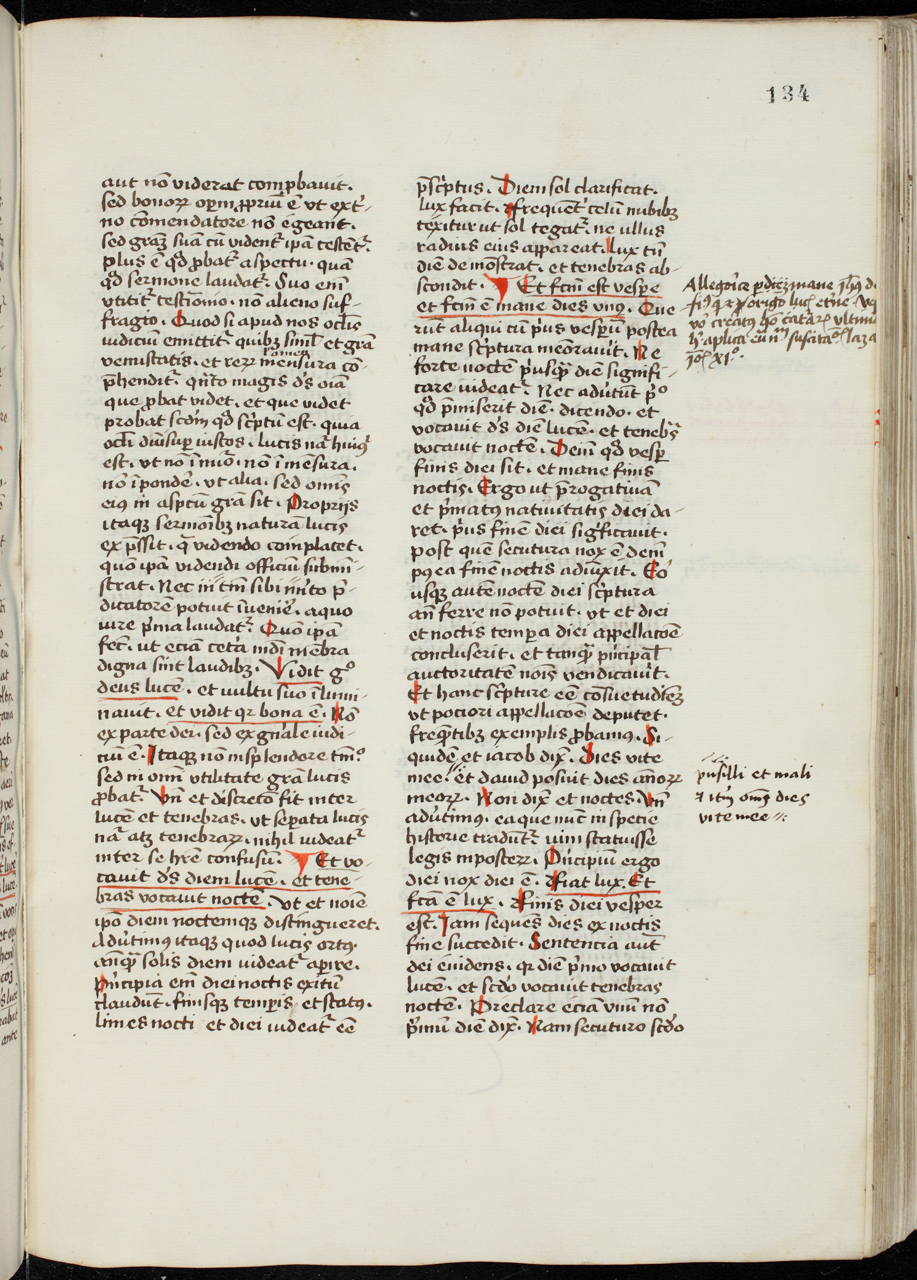 134
aut nō viderat comꝓbavit.
sed bonoꝝ opm̄ ꝓpriū ē vt ext'-
no cōmendatore nō egeant.
sed grāꝫ suā cū vident' ipā testent'.
plus ē qđ ꝓbat' aspectu. quā
qđ sermone laudat'. Suo em̄
vtitit' testiō. nō alieno suf-
fragio. Quod si apud nos oclīs
iudiciū emittit' quibꝫ simil' et grā
venustatis. et reꝝ mensura cō-
p̄hendit'. qn̄to magis ds̄ oīā
que ꝓbat videt. et que videt
probat scdm̄ qđ sc̄ptū est. quia
ocl̄i dn̄i sup̄ iustos. lucis nā huiꝰ
est. vt nō ī nūo. nō ī mēsura.
nō ī pondē. vt alia. sed omīs
eiꝰ in aspcū grā sit. Proprijs
itaqꝫ sermonibꝫ naturā lucis
ex p̄ssit. q̄ videndo complacet.
quō ipā videndi officiū submi-
strat. Nec in tm̄ sibi īn̄to p̄-
dicatore potuit īvenire. a quo
iure p̄ma laudat'. Quō ipā
fec̄. ut eciā cet̄a mdī mēbra
digna sint laudibꝫ. Vidit gͦ
deus lucē. et vultu suo īlumi-
navit. et vidit qꝛ bona ē. Nō
ex parte dei. sed ex gn̄ale iudi-
ciū ē. Itaqꝫ nō in splendore tm̄ͦ
sed in omī vtilitate grā lucis
ꝓbat'. Vn̄ et discretō fit inter
lucē et tenebras. vt sepata lucis
nā atqꝫ tenebraꝝ. nihil videat'
inter se hrē confusū. Et vo-
cavit ds̄ diem lucē. et tene-
bras vocavit noctē. Vt et noīe
ipō diem noctemqꝫ distingueret.
Adv̄timus itaqꝫ quod lucis ortꝰ.
anq̄ solis diem videat' apire.
Pn̄cipia em̄ diei noctis exitū
claudūt. finisqꝫ tempis et statꝰ.
limes nocti et diei videat' eē
p̄sc̄ptus. Diem sol clarificat.
lux facit. frequent' celū nubibꝫ
texitur ut sol tegat'. ne ullus
radius eius appareat. Lux tn̄
diē demōstrat. et tenebras ab-
scondit. Et fcm̄ est vespe
et fcm̄ ē mane dies vnꝰ. Que
rūt aliqui cū p̄us vesperū postea
mane sc̄ptura memoravit. Ne
forte noctē p̄usq̄ diē signifi-
care videat'. Nec adv̄tūt pͦ
qđ p̄miserit diē. dicendo. et
vocavit ds̄ diē lucē. et tenebās
vocavit noctē. Deīn qđ vesp̄
finis diei sit. et mane finis
noctis. Ergo ut p̄rogativā
et p̄matꝰ nativitatis diei da-
ret. p̄us finē diei sig'ficavit.
post quē secutura nox ē dein̄
pꝰea finē noctis adiūxit. Eō
usqꝫ autē noctē diei sc̄ptura
an̄ ferre nō potuit. vt et diei
et noctis tempa diei appellacōe
concluserit. et tanq̄ pn̄cipal'
auctoritatē noīs vendicavit.
Et hanc sc̄pture eē cōsuetudinē
vt pociori appellacōe deputet.
freq̄tibus exemplis probamꝰ. Si-
quidē et iacob dix̄. Dies vite
mee. et dauid posuit dies an̄oꝝ
meoꝝ. Non dix̄ et noctes. Vn̄
adv̄timꝰ. ea que nūc in specie
historie tradūt'. vim statuisse
legis in posteꝝ. Pn̄cipiū ergo
diei nox diei ē. Fiat lux. Et
fcā ē lux. Finis diei vesper
est. Iam seq̄ues dies ex noctis
fine succedit. Sentencia aūt
dei evidens. qꝛ diē p̄mo vocavit
lucē. et scd̄o vocavit tenebras
noctē. Preclare eciā vnū nō
p̄mū diē dix̄. Nam secuturo scd̄o
pusilli et mali
⁊ itm̄ om̄s dies
vite mee